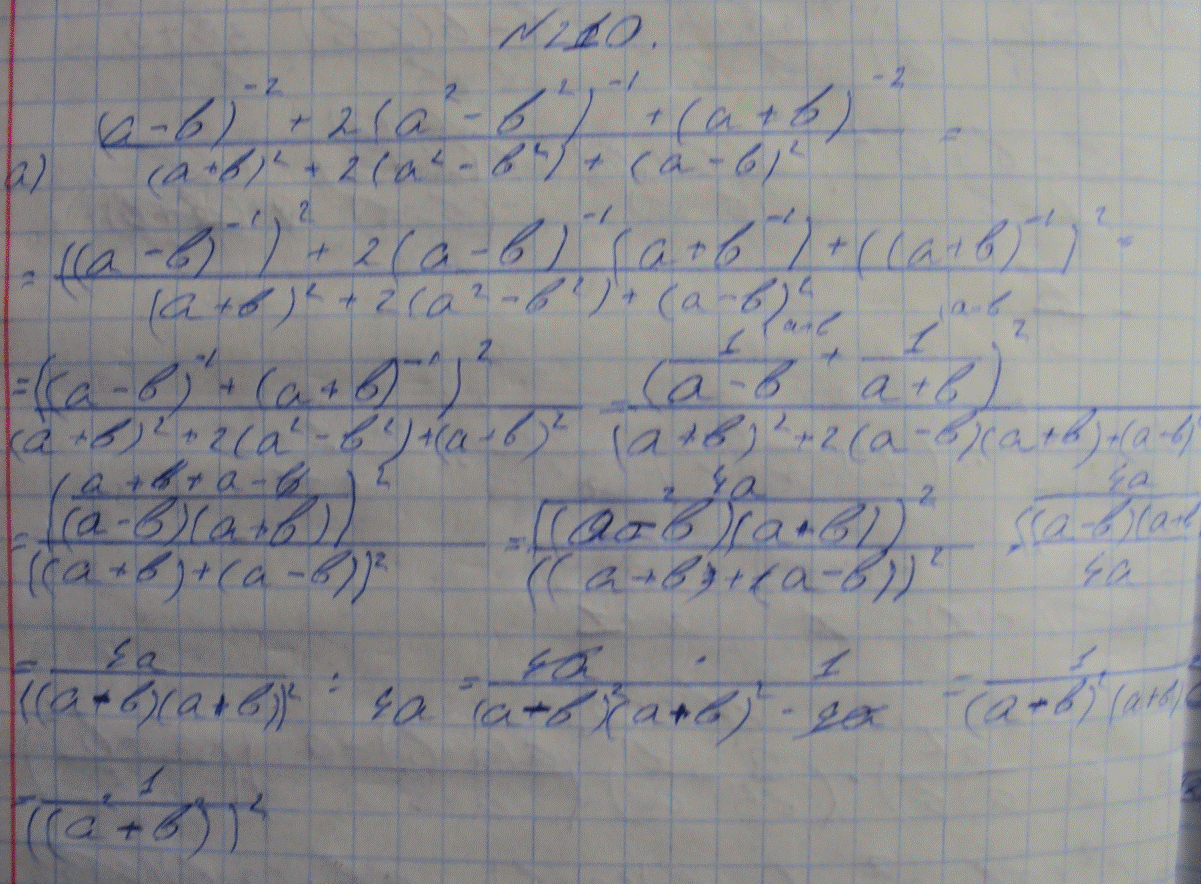 №210.
а) ((a-b)^-2 + 2(a^2 - b^2)^-1 + (a+b)^-2) / ((a+b)^2 + 2(a^2 - b^2) + (a-b)^2) =
= (((a-b)^-1)^2 + 2(a-b)^-1 (a+b^-1) + ((a+b)^-1)^2) / ((a+b)^2 + 2(a^2 - b^2) + (a-b)^2) =
= ((a-b)^-1 + (a+b)^-1)^2 / ((a+b)^2 + 2(a^2 - b^2) + (a-b)^2) = (1/(a-b) (a+b + 1/(a+b) (a-b)^2 / ((a+b)^2 + 2(a-b)(a+b) + (a-b)^2
= ((a+b+a-b)/((a-b)(a+b)))^2 / ((a+b)+(a-b))^2 = (4a / ((a-b)(a+b))^2) / ((a+b)+(a-b))^2 = (4a / ((a-b)(a+b) / 4a
= 4a / ((a-b)(a+b))^2 : 4a = 4a / (a-b)^2 (a+b)^2 · 1 / 4a = 1 / (a-b)^2 (a+b)
= 1 / ((a^2 + b^2))^2